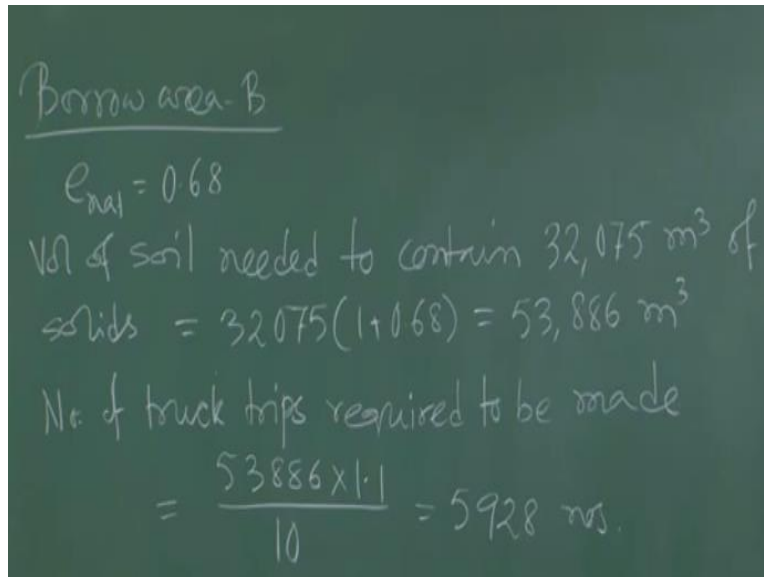 Borrow area-B
e nat = 0.68
Vol of soil needed to contain 32,075 m³ of
solids = 32075(1+0.68) = 53,886 m³
No. of truck trips required to be made
= 53886 x 1.1 / 10 = 5928 nos.